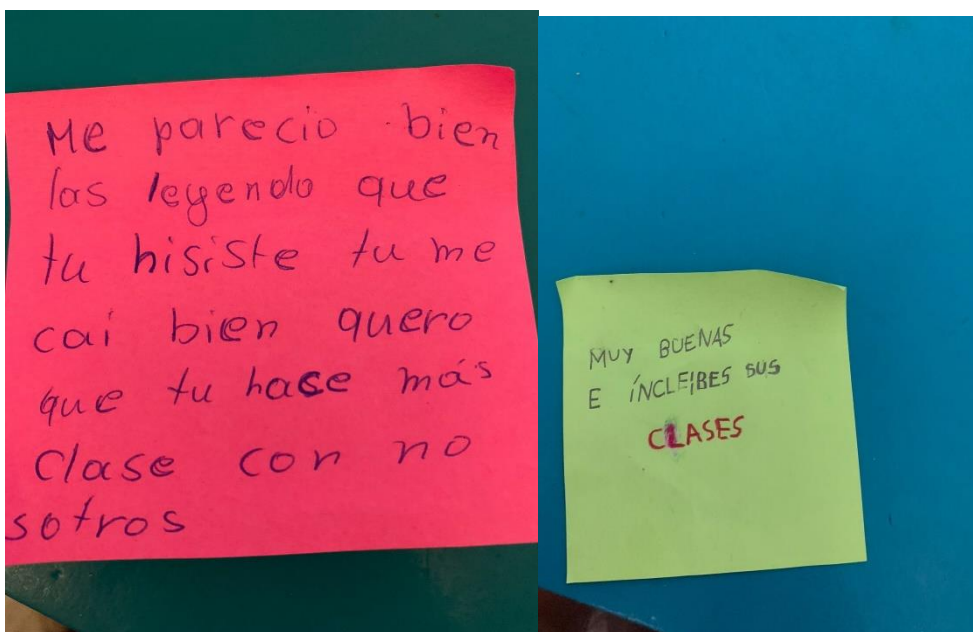 Me parecio bien
las leyendo que
tu hisiste tu me
cai bien quero
que tu hace más
Clase con no
sotros
MUY BUENAS
E ÍNCLEIBES SUS
CLASES